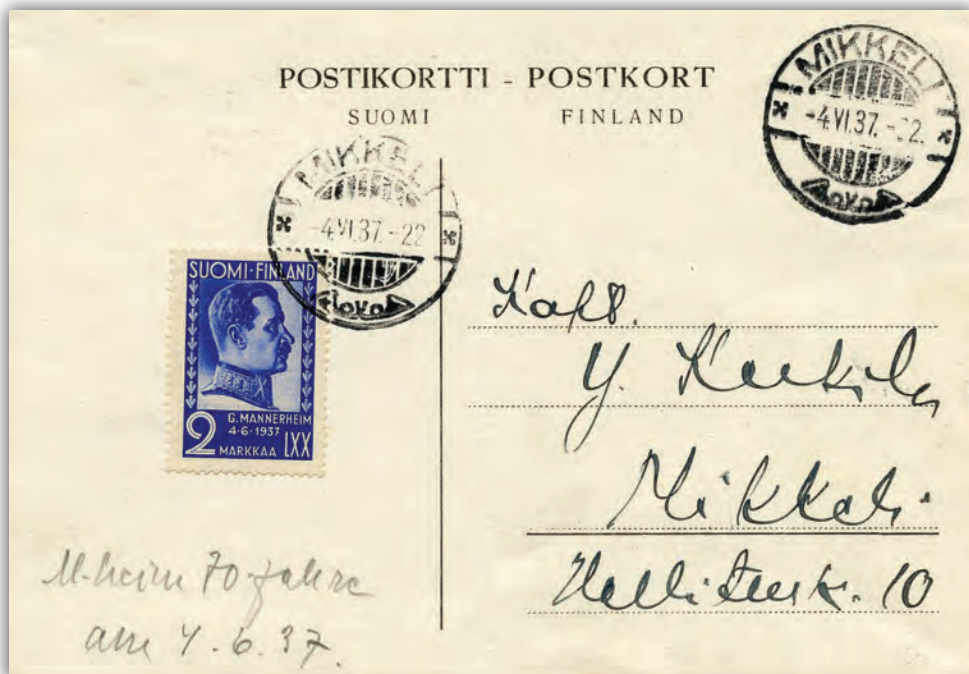 POSTIKORTTI - POSTKORT
SUOMI FINLAND
MIKKELI
-4.VI.37.-22.
MIKKELI
-4.VI.37.-22
SUOMI·FINLAND
G. MANNERHEIM
4·6·1937
2 MARKKAA LXX
Y.
Mikkeli
10
M-heim 70 Jahre
am 4.6.37.